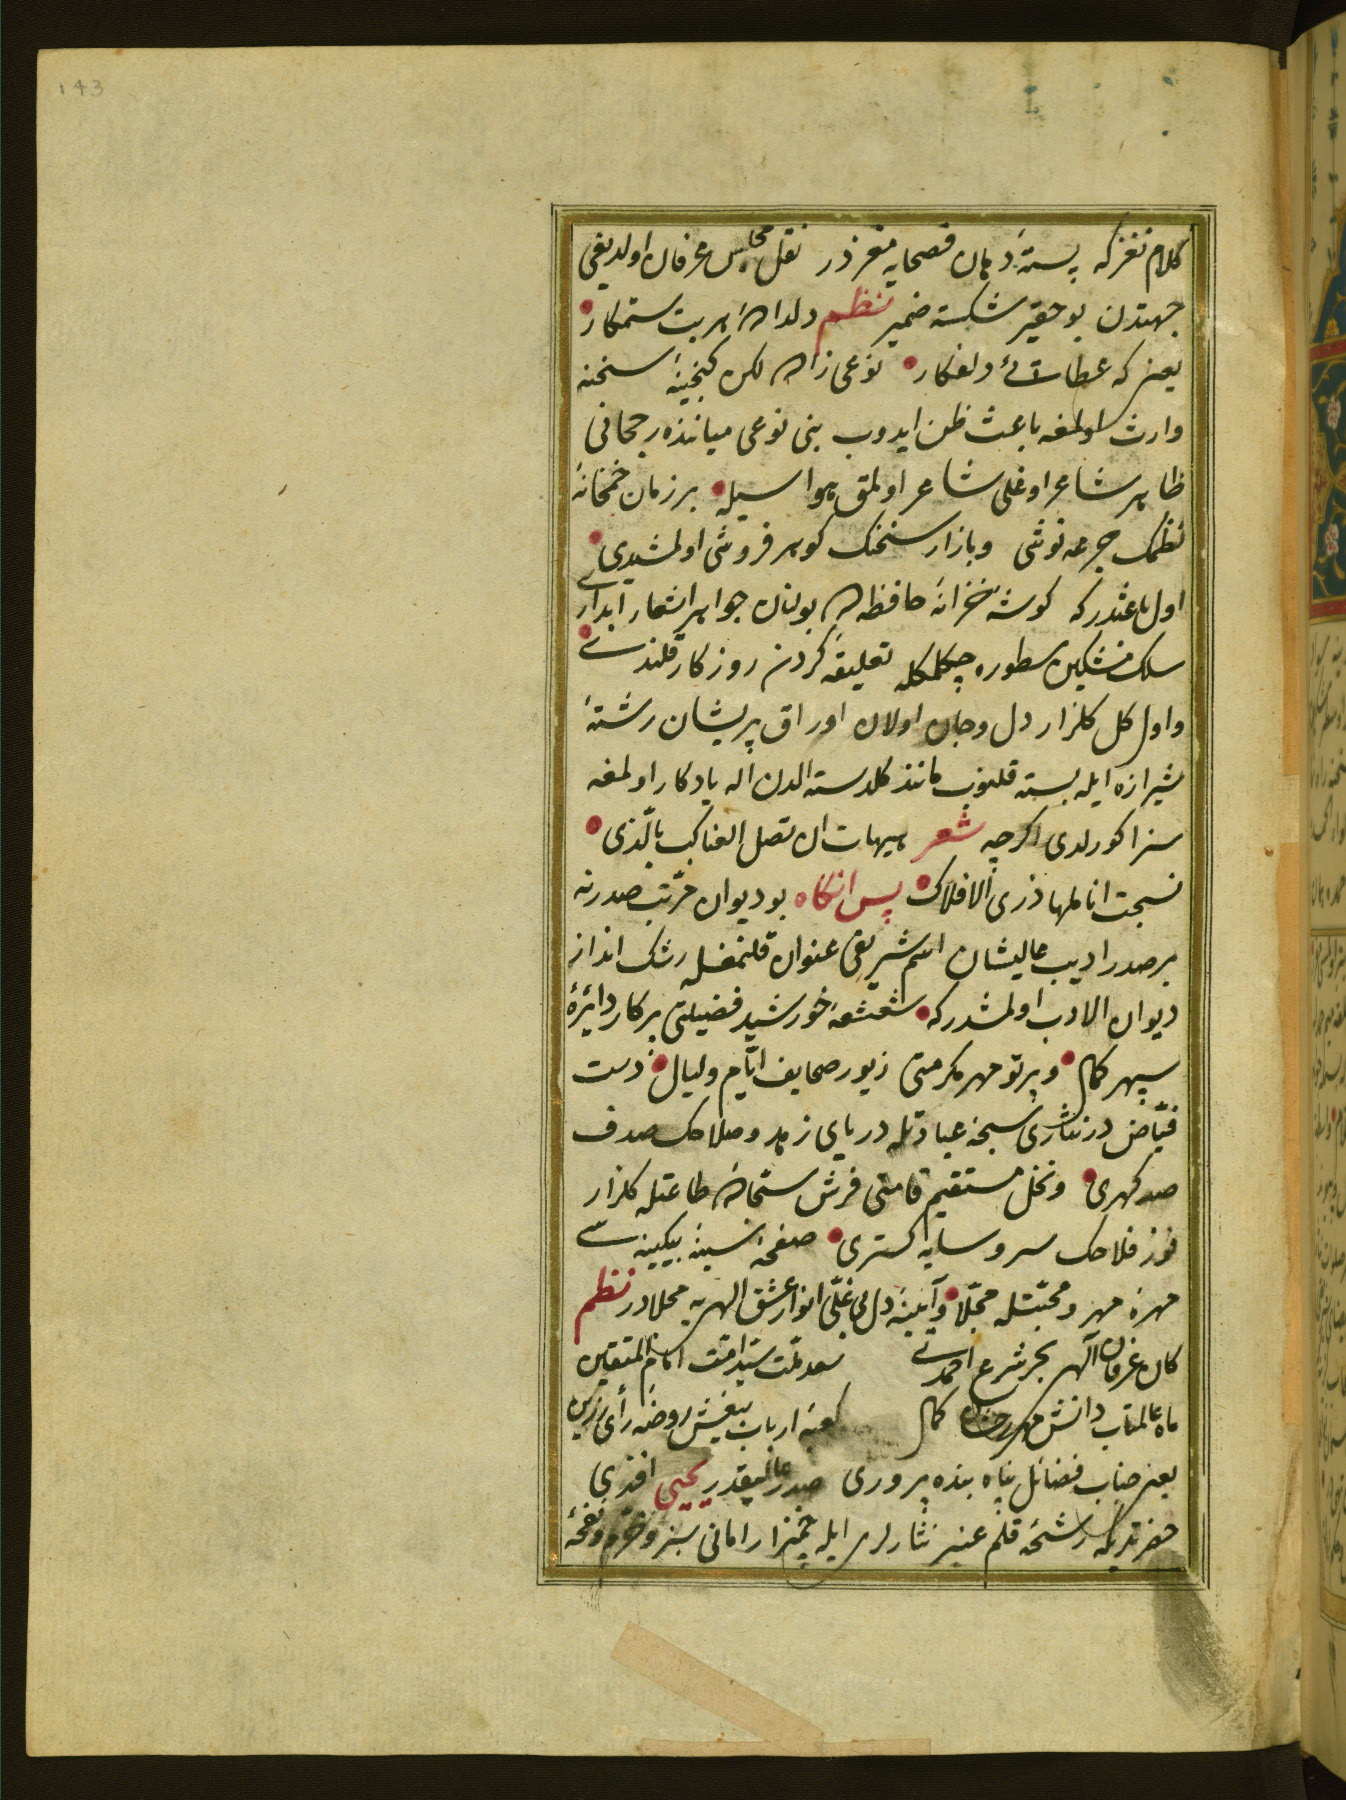 143
كلام نغز كه پستهٔ دهان فصحایه مغزدر نقل مجلس عرفان اولدیغی
جهتدن بو حقیر شكسته ضمیر نظم دلدادهٔ هر بت ستمكار
یعنی كه عطائی دلفكار نوعی زاده لكن كنجینهٔ سخنه
وارث اولمغه باعث ظن ایدوب بنی نوعی میاننده رجحانی
ظاهر شاعر اوغلی شاعر اولمق هواسیله بر زمان خمخانهٔ
نظمك جرعه نوشی و بازار سخنك كوهر فروشی اولمشیدی
اول باعثدركه كوشهٔ خزانهٔ حافظه ده بولنان جواهر اشعار ابداری
سلك مشكین سطوره چكلمكله تعلیقهٔ كردن روزكار قلندی
و اول كل كلزار دل و جان اولان اوراق پریشان رشتهٔ
شیرازه ایله بسته قلنوب مانند كلدسته الدن اله یادكار اولمغه
سزا كورلدی اكرچه شعر هیهات ان تصل العناكب بالذی
نسجت اناملها ذری الافلاك پس انكاه بو دیوان مرتب صدرنه
بر صدر ادیب عالیشان اسم شریفی عنوان قلنمغله رشك انداز
دیوان الادب اولمشدركه شعشعهٔ خورشید فضیلتی پركار دائرهٔ
سپهر كمال و پرتو مهر مكرمتی زیور صحایف ایام و لیال دست
فیاض درنثاری سبحهٔ عبادتله دریای زهد و صلاحك صدف
صد كهری و نخل مستقیم قامتی فرش سجادهٔ طاعتله كلزار
فوز فلاحك سرو سایه كستری صفحهٔ سینهٔ بیكینه سی
مهرهٔ مهر و محبتله مجلا و آیینهٔ دل بی غلی انوار عشق الهی یه محلادر نظم
كان عرفان الهی بحر شرع احمدی سعد ملت سید امت امام المتقین
ماه عالمتاب دانش مهر رخشان كمال كعبهٔ ارباب بینش روضهٔ رأی رزین
یعنی جناب فضائل پناه بنده پروری صدر عالیقدر یحیی افندی
حضرتلریكه رشحهٔ قلم عنبر نثارلری ایله چمنزار امانی سبز و خرم و نفحهٔ